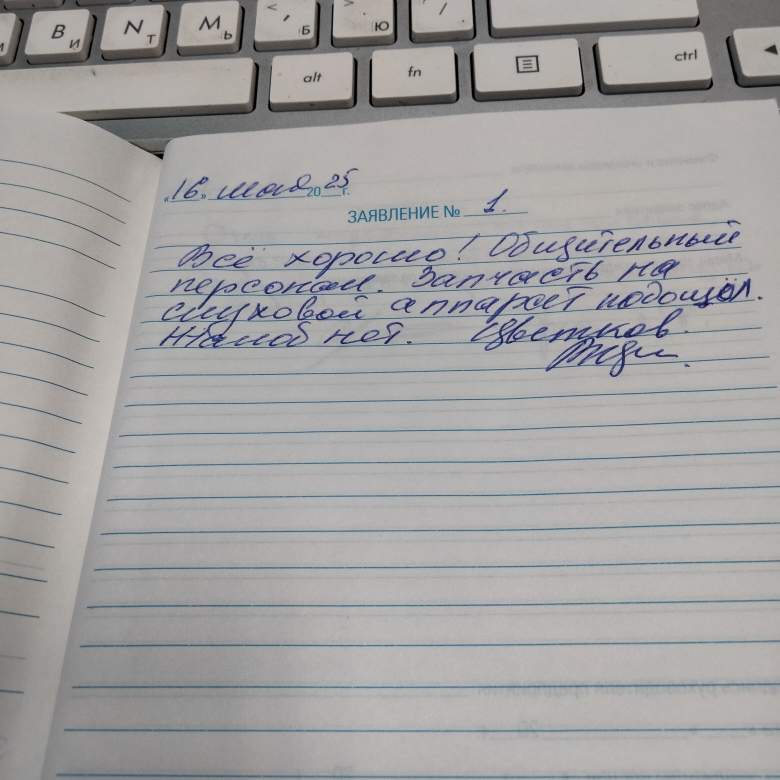 В И
N Т
М Ь
< , Б
> . Ю
? /
alt
fn
ctrl
"16" мая 2025 г.
ЗАЯВЛЕНИЕ № 1.
Всё хорошо! Общительный
персонал. Запчасть на
слуховой аппарат подошёл.
Жалоб нет. Цветков.